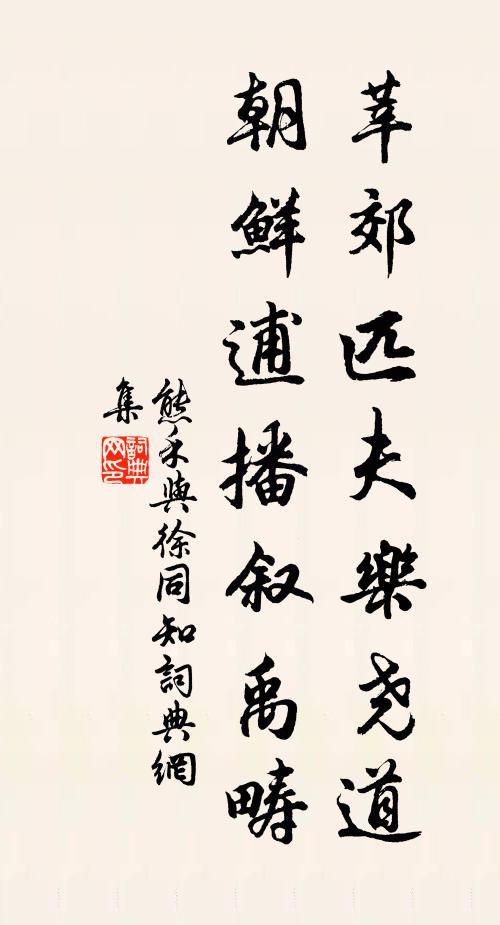 莘郊匹夫樂尧道
朝鮮逋播叙禹疇
熊禾與徐同知詞典網
集
詞典
网印